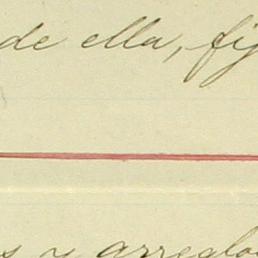 de ella, fij
s y arreglo